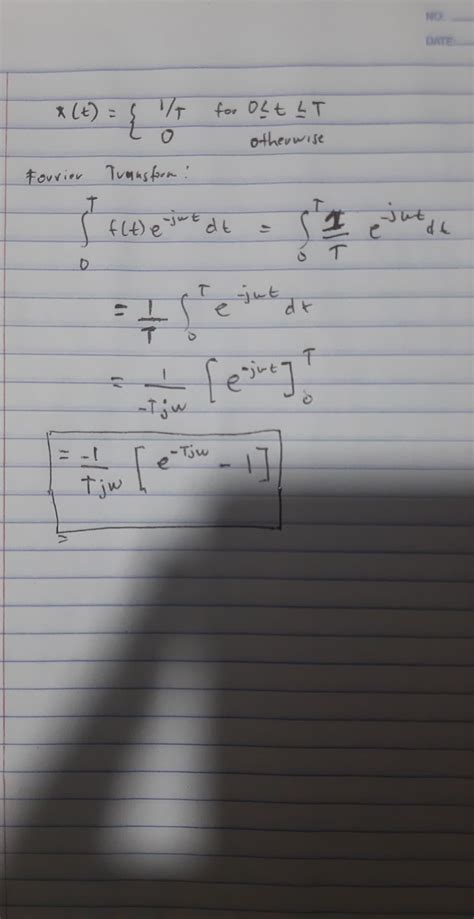 NO:
DATE:
x(t) = { 1/T for 0≤t≤T
0 otherwise
Fourier Transform:
∫₀ᵀ f(t)e^{-jωt} dt = ∫₀ᵀ 1/T e^{-jωt} dt
= 1/T ∫₀ᵀ e^{-jωt} dt
= 1/-Tjω [e^{-jωt}]₀ᵀ
= -1/Tjω [e^{-Tjω} - 1]
=